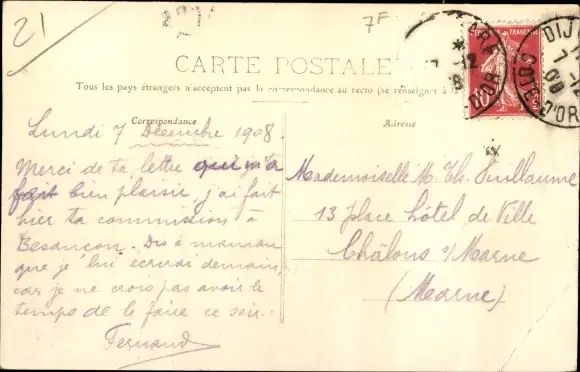 21
7F
CARTE POSTALE
Tous les pays étrangers n'acceptent pas la correspondance au recto (se renseigner à
Correspondance
Adresse
Lundi 7 Décembre 1908.
Merci de ta lettre qui m'a
fait bien plaisir, j'ai fait
hier ta commission à
Besançon. Dis à maman
que je lui écrirai demain,
car je ne crois pas avoir le
temps de le faire ce soir.
Fernand
Mademoiselle M. Th. Guillaume
13 place hôtel de Ville
Châlons s/Marne
(Marne)
REPUBLIQUE FRANÇAISE
10
POSTES
DIJON
7-12
08
COTE D'OR
GARE
7-12
D'OR